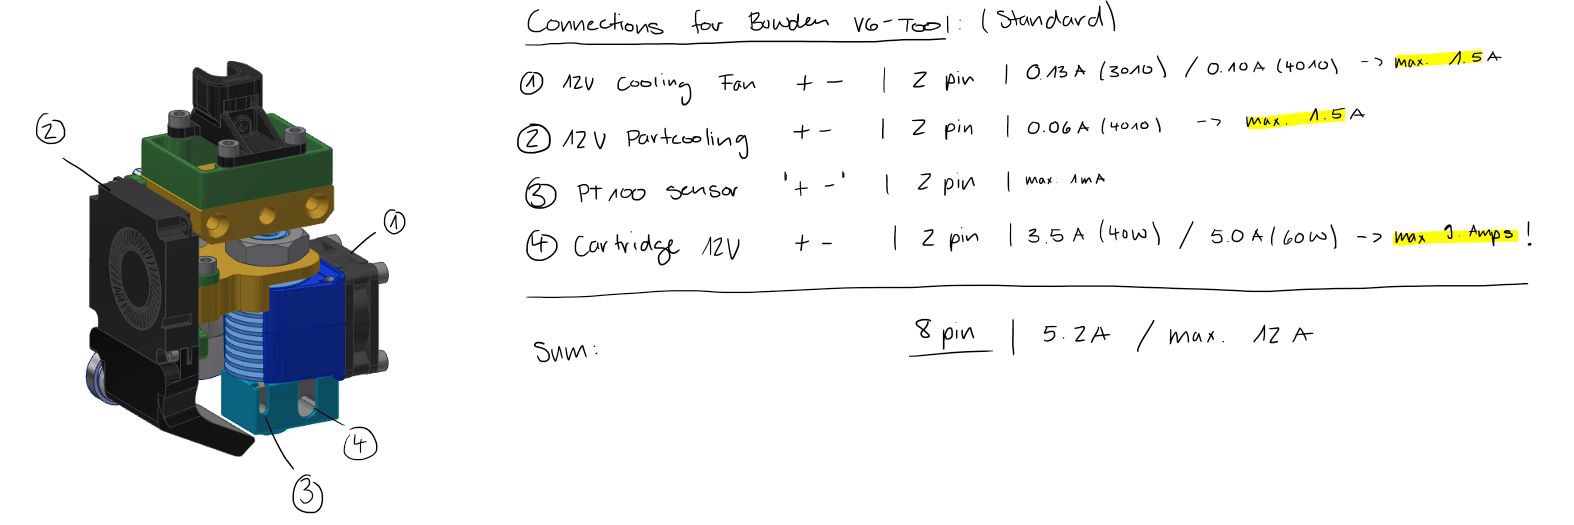 Connections for Bowden V6-Tool: (Standard)
① 12V Cooling Fan + - | 2 pin | 0.13 A (3010) / 0.10 A (4010) -> max. 1.5 A
② 12V Partcooling + - | 2 pin | 0.06 A (4010) -> max. 1.5 A
③ Pt100 sensor '+ -' | 2 pin | max. 1mA
④ Cartridge 12V + - | 2 pin | 3.5 A (40W) / 5.0 A (60W) -> max 9. Amps !
Sum: 8 pin | 5.2A / max. 12 A
②
①
④
③